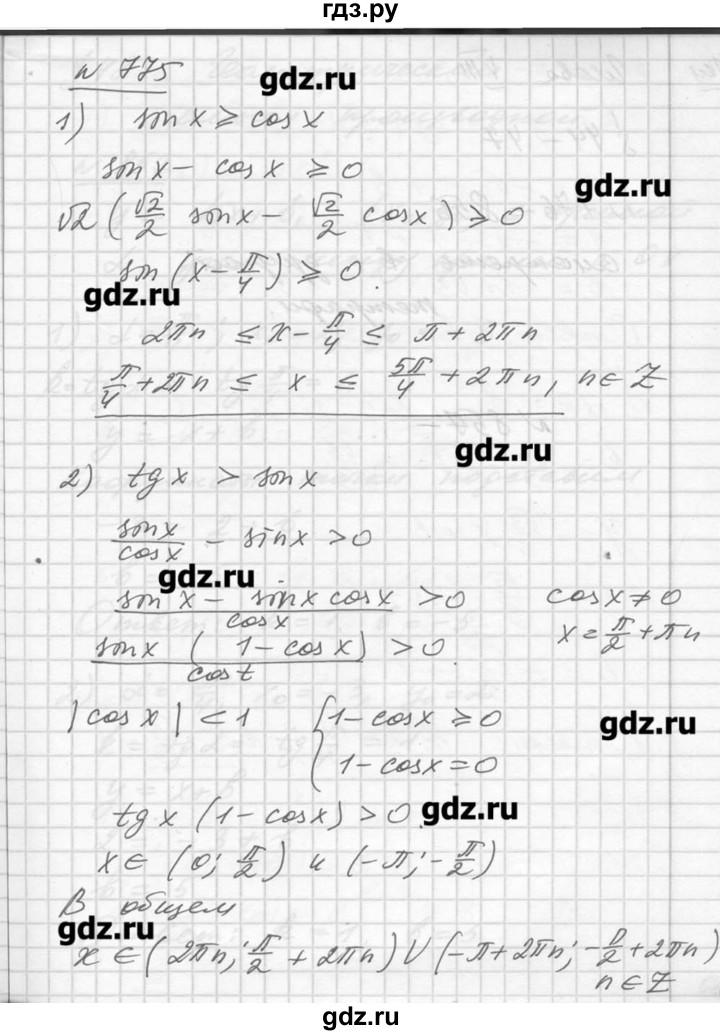 гдз.ру
n 775
gdz.ru
1) sin x ≥ cos x
sin x – cos x ≥ 0
gdz.ru
√2 (√2/2 sin x – √2/2 cos x) ≥ 0
sin (x – π/4) ≥ 0.
gdz.ru
2πn ≤ x – π/4 ≤ π + 2πn
π/4 + 2πn ≤ x ≤ 5π/4 + 2πn, n ∈ Z
gdz.ru
2) tg x > sin x
sin x / cos x – sin x > 0
gdz.ru
(sin x – sin x cos x) / cos x > 0 cos x ≠ 0
(sin x (1 – cos x)) / cos t > 0. x = π/2 + πn
|cos x| < 1 { 1 – cos x ≥ 0
gdz.ru
1 – cos x = 0
tg x (1 – cos x) > 0.
gdz.ru
x ∈ (0; π/2) и (–π; –π/2)
В общем
gdz.ru
x ∈ (2πn; π/2 + 2πn) U (–π + 2πn; –π/2 + 2πn)
n ∈ Z